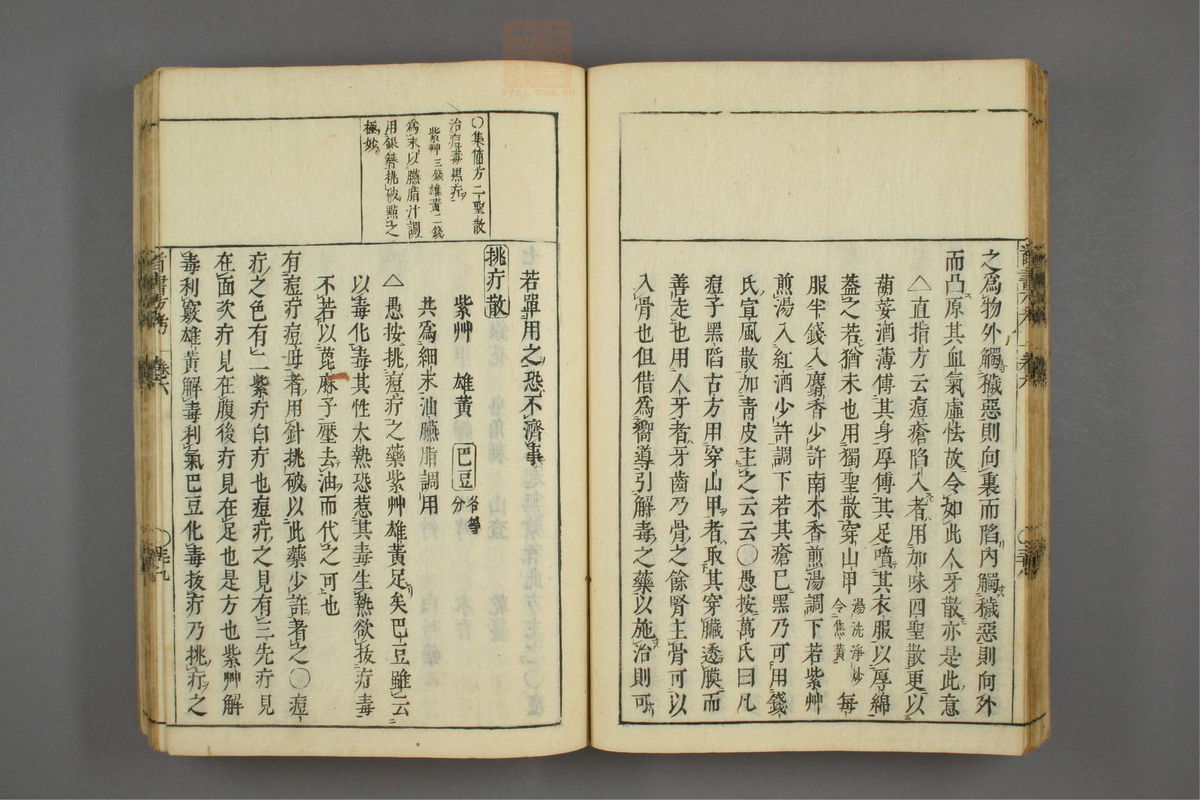 之爲物外觸穢惡則向裏而陷內觸穢惡則向外
而凸原其血氣虛怯故令如此人牙散亦是此意
△直指方云痘瘡陷入者用加味四聖散更以
葫荽酒薄傅其身厚傅其足噴其衣服以厚綿
葢之若猶未也用獨聖散穿山甲湯洗淨炒令焦黃每
服半錢入麝香少許南木香煎湯調下若紫艸
煎湯入紅酒少許調下若其瘡已黑乃可用錢
氏宣風散加青皮主之云云〇愚按萬氏曰凡
痘子黑陷古方用穿山甲者取其穿臟透膜而
善走也用人牙者牙齒乃骨之餘腎主骨可以
入骨也但借爲嚮導引解毒之藥以施治則可
若單用之恐不濟事
挑疔散
紫艸 雄黃 巴豆各等分
共爲細末油臙脂調用
△愚按挑痘疔之藥紫艸雄黃足矣巴豆雖云
以毒化毒其性太熱恐惹其毒生熱欲拔疔毒
不若以萆麻子壓去油而代之可也
有痘疔痘母者用針挑破以此藥少許著之〇痘
疔之色有二紫疔白疔也痘疔之見有三先疔見
在面次疔見在腹後疔見在足也是方也紫艸解
毒利竅雄黃解毒利氣巴豆化毒拔疔乃挑疔之
〇集僃方二聖散
治痘毒黑疔
紫艸三錢雄黃二錢
爲末以臙脂汁調
用銀簪挑破點之
極妙